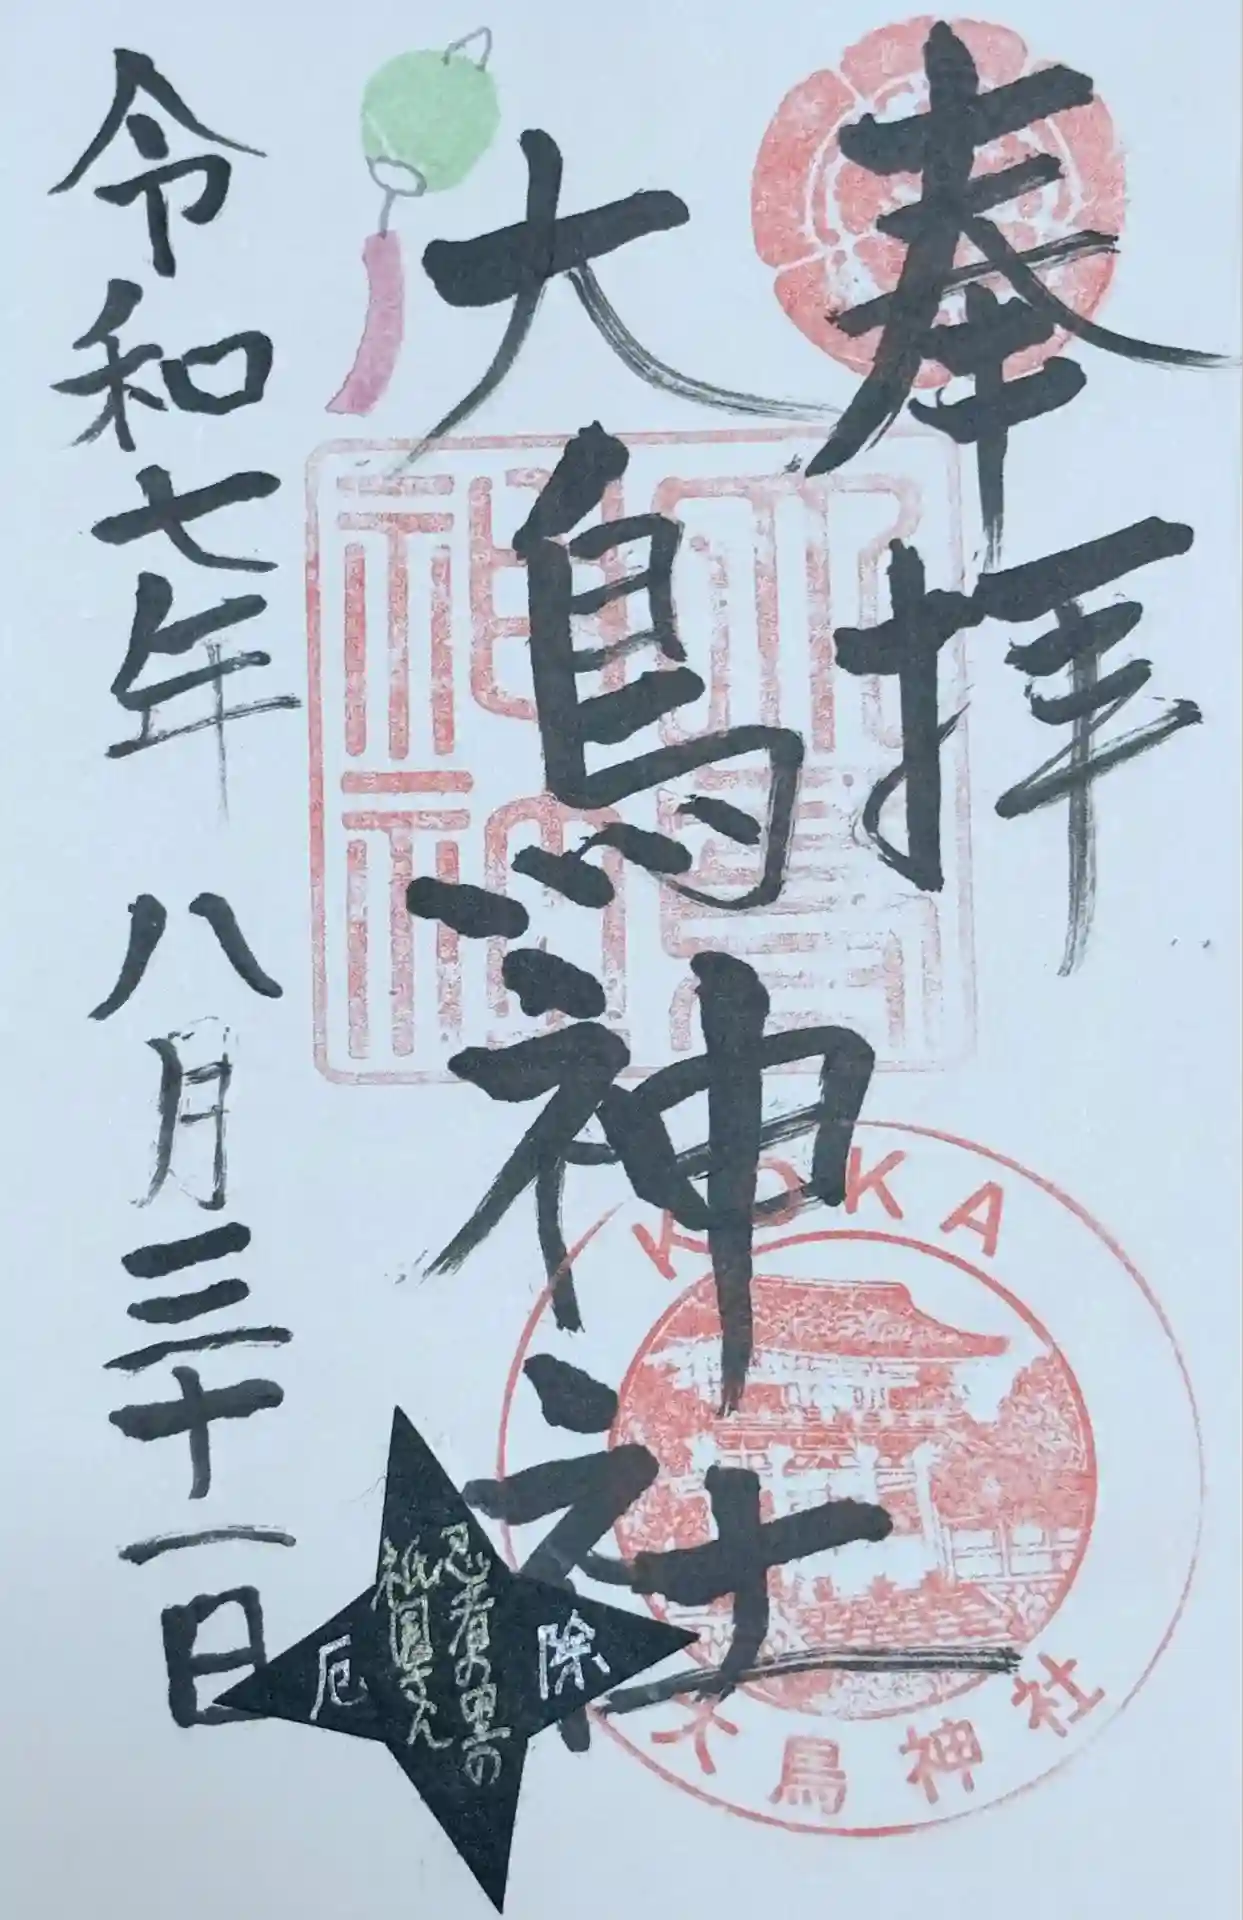 奉拝
大鳥神社
令和七年 八月三十一日
KOKA
大鳥神社
忍者の里の
祇園さん
厄除